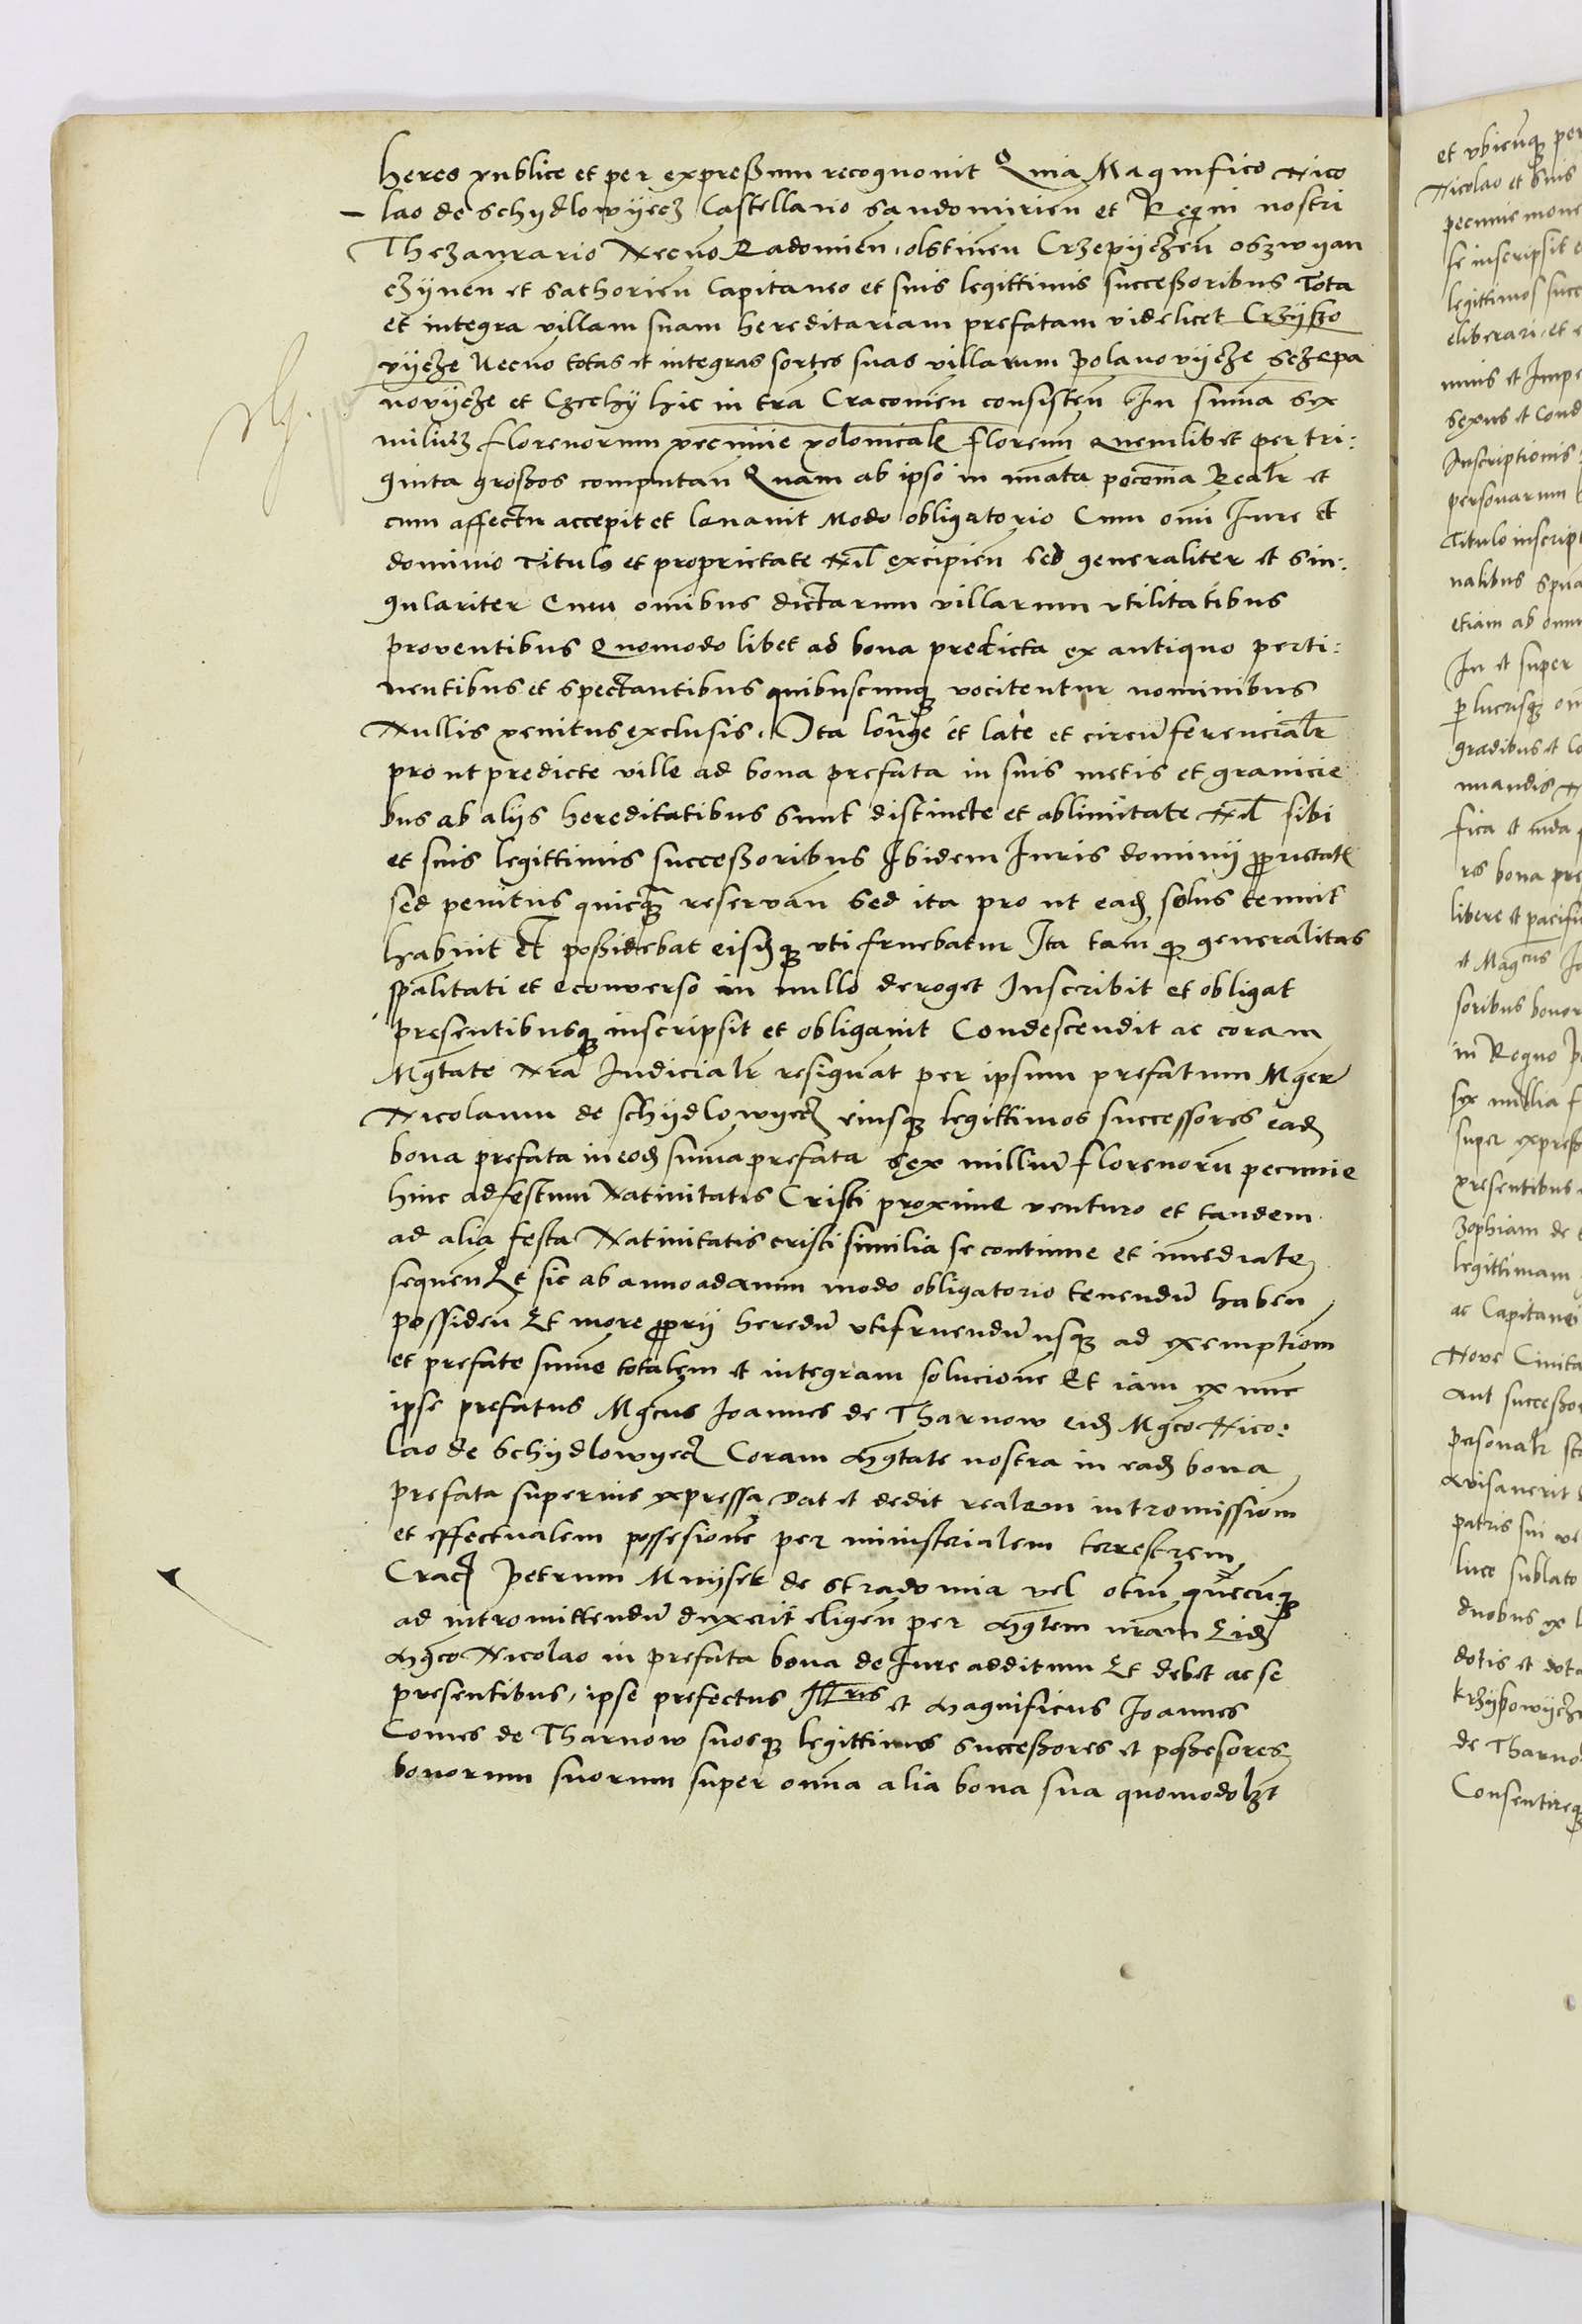 heres publice et per expreßum recognouit Quia Magnifico Nico
lao de Schydlowyecz Castellano Sandomirien̄ et Regni nostri
Thezaurario Necno Radomien̄, olstinen̄ Crzepyczen̄ oszwyan
czynen̄ et Sathorien̄ Capitaneo et suis legittimis succeßoribus Tota
et integra villam suam hereditariam prefatam videlicet Crzyßo
vycze Necno totas et integras sortes suas villarum Polanovycze Sczepa
novycze et Czechy hic in tr̄a Craconien̄ consisten̄ In sum̄a sex
milium florenorum pecunie polonical̄ florenū Quemlibet per tri:
ginta großos computan̄ Quam ab ipso in nūata pecōnia Realr̄ et
cum affectu accepit et leuauit Modo obligatorio Cum om̄i Iure et
dominio Titulo et proprietate Nīl excipien̄ sed generaliter et sin:
gulariter Cum om̄ibus dictarum villarum vtilitatibus
proventibus Quomodo libet ad bona predicta ex antiquo perti:
nentibus et spectantibus quibuscunq̨ vocitentur nominibus
Nullis penitus exclusis. Ita longe et late et circūferencialr̄
pro ut predicte ville ad bona prefata in suis metis et granicie
bus ab aliis hereditatibus sunt distincte et ablimitate Nīl sibi
et suis legittimis succeßoribus Ibidem Iuris dominij pprietat
sed penitus quicq̨ reservan̄ Sed ita pro ut ead solus tenuit
habuit Et poßidebat eisdq̨ uti fruebatur Ita tam̄ q generalitas
spālitati et econverso in nullo deroget Inscribit et obligat
presentibusq̨ inscripsit et obligauit Condescendit ac coram
Mgtate Nrā Iudicialr̄ resignat per ipsum prefatum Mger
Nicolaum de Schydlowyecz eiusq̨ legittimos successores ead
bona prefata in eod sum̄a prefata sex millium florenorū pecunie
hinc ad festum Natiuitatis Cristi proxime venturo et tandem
ad alia festa Natiuitatis cristi similia se continue et im̄ediate
sequen̄ Et sic ab anno ad annum modo obligatorio tenendū haben̄
possiden̄ Et more pprij heredū vtifruendū usq̨ ad exemptiōm
et prefate sum̄e totalem et integram solucionē Et iam ex nunc
ipse prefatus Mgcus Ioannes de Tharnow eid Mgco Nico:
lao de Schydlowyecz Coram Mgtate nostra in ead bona
prefata superius expressa dat et dedit realem intromissiōm
et effectualem possesionē per ministerialem terrestrem
Crac Petrum Mnysek de Stradomia vel otm̄ quēcūq̨
ad intromittendū duxerit eligen̄ per Mgtem nram Eid
Mgco Nicolao in prefata bona de Iure additum Et debet ac se
presentibus, ipse prefectus Ill̄ris et Magnificus Ioannes
Comes de Tharnow suosq̨ legittimos succeßores et poßesores
bonorum suorum super om̄ia alia bona sua quomodolzt
et vbicunq̨ per
Nicolao et suis
pecunie mone
se inscripsit
legittimos succe
eliberari, et
nnis et Impe
sexus et Cond
Inscriptionis
personarum
Titulo inscript
nalibus spua
etiam ab omni
In et super
p lucrisq̨ om
gradibus et Co
nuandis N
fica et nda
res bona pre
libere et pacifi
et Magcus Io
soribus bonor
in Regno P
sex millia f
super expreß
presentibus
Zophiam de
legittimam
ac Capitanei
Nove Ciuita
Aut succeßor
personalr̄ st
Avisauerit
patris sui ve
luce sublato
duobus ex
dotis et dota
Krzyßowycze
de Tharno
Consentireq̨